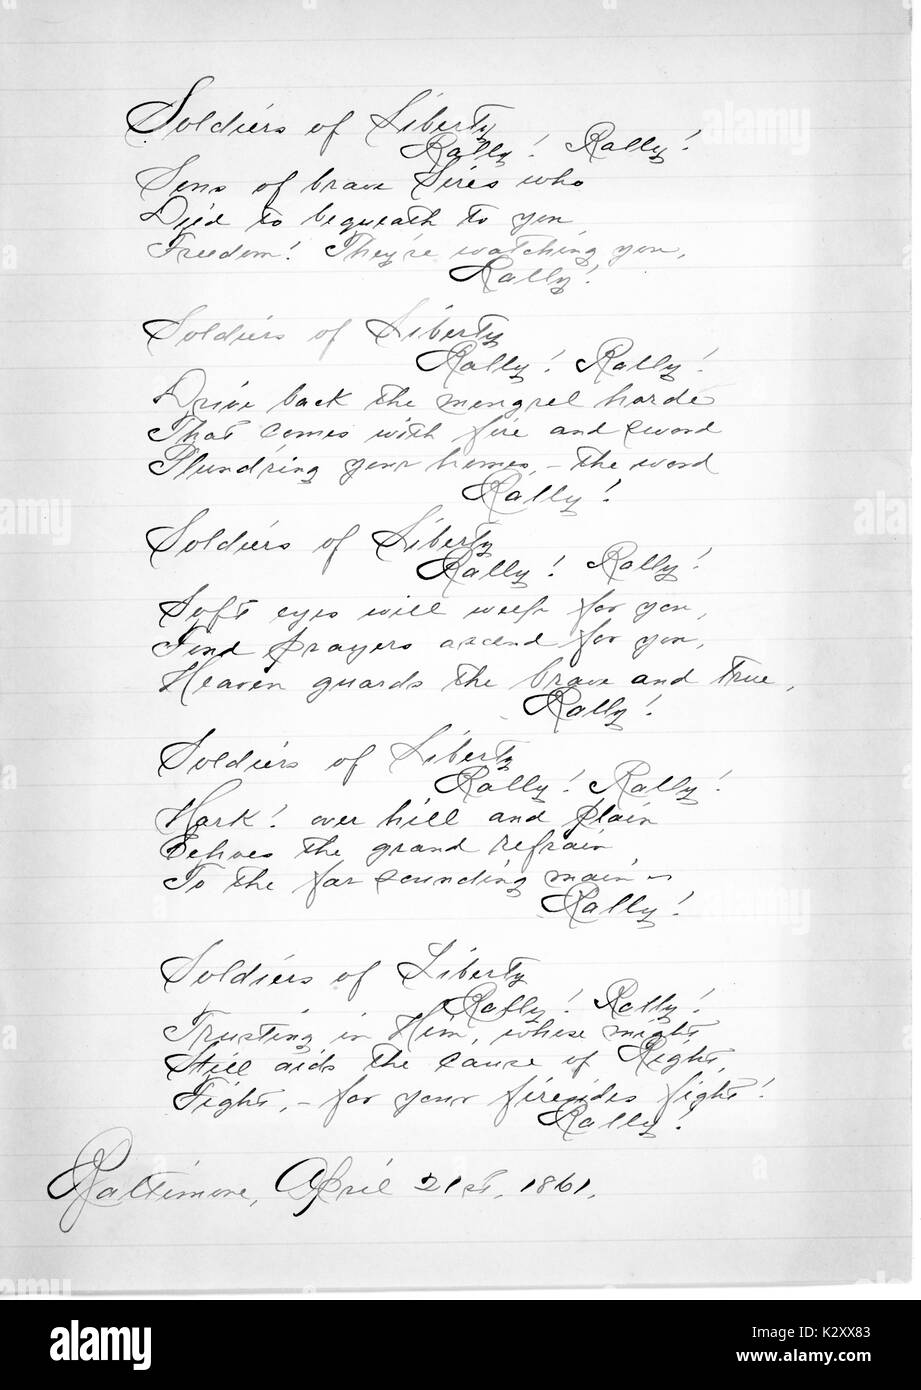 Soldiers of Liberty
Rally! Rally!
Sons of brave Sires who
Died to bequeath to you
Freedom! They're watching you,
Rally!
Soldiers of Liberty
Rally! Rally!
Drive back the mongrel horde
That comes with fire and sword
Plund'ring your homes, – the word
Rally!
Soldiers of Liberty
Rally! Rally!
Soft eyes will weep for you,
Fond prayers ascend for you,
Heaven guards the brave and true,
Rally!
Soldiers of Liberty
Rally! Rally!
Hark! over hill and plain
Echoes the grand refrain
To the far sounding main –
Rally!
Soldiers of Liberty
Rally! Rally!
Trusting in Him, whose might
Still aids the cause of Right,
Fight, – for your firesides fight!
Rally!
Baltimore, April 21st, 1861.
alamy
Image ID: K2XX83
www.alamy.com